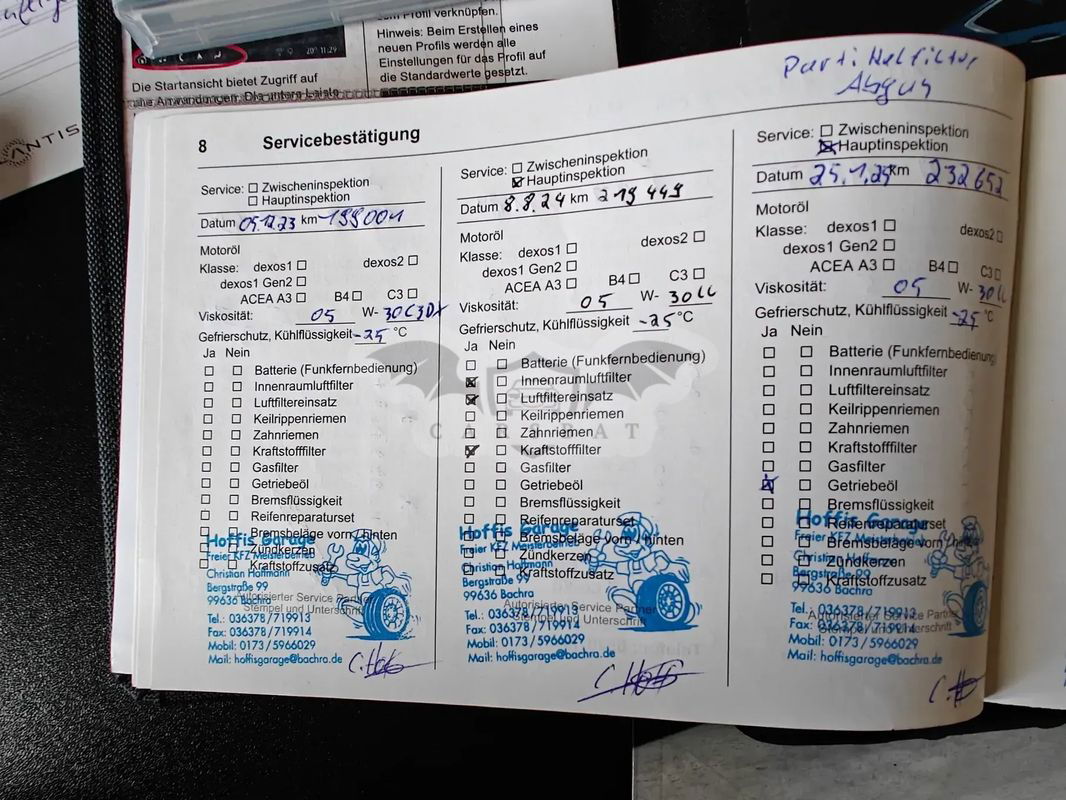 zum Profil verknüpfen.
Hinweis: Beim Erstellen eines
neuen Profils werden alle
Einstellungen für das Profil auf
die Standardwerte gesetzt.
20° 11:29
Die Startansicht bietet Zugriff auf
alle Anwendungen. Die untere Leiste
ANTIS
8 Servicebestätigung
Service: Zwischeninspektion
Hauptinspektion
Datum 05.12.23 km 199001
Motoröl
Klasse: dexos1 dexos2
dexos1 Gen2
ACEA A3 B4 C3
Viskosität: 05 W- 30C3DX
Gefrierschutz, Kühlflüssigkeit -25 °C
Ja Nein
Batterie (Funkfernbedienung)
Innenraumluftfilter
Luftfiltereinsatz
Keilrippenriemen
Zahnriemen
Kraftstofffilter
Gasfilter
Getriebeöl
Bremsflüssigkeit
Reifenreparaturset
Bremsbeläge vorn / hinten
Zündkerzen
Kraftstoffzusatz
Autorisierter Service Partner
Stempel und Unterschrift
Hoffis Garage
Freier KFZ Meisterbetrieb
Christian Hoffmann
Bergstraße 99
99636 Bachra
Tel.: 036378/719913
Fax: 036378/719914
Mobil: 0173/5966029
Mail: hoffisgarage@bachra.de
Service: Zwischeninspektion
Hauptinspektion
Datum 8.8.24 km 219449
Motoröl
Klasse: dexos1 dexos2
dexos1 Gen2
ACEA A3 B4 C3
Viskosität: 05 W- 30LL
Gefrierschutz, Kühlflüssigkeit -25 °C
Ja Nein
Batterie (Funkfernbedienung)
Innenraumluftfilter
Luftfiltereinsatz
Keilrippenriemen
Zahnriemen
Kraftstofffilter
Gasfilter
Getriebeöl
Bremsflüssigkeit
Reifenreparaturset
Bremsbeläge vorn / hinten
Zündkerzen
Kraftstoffzusatz
Autorisierter Service Partner
Stempel und Unterschrift
Hoffis Garage
Freier KFZ Meisterbetrieb
Christian Hoffmann
Bergstraße 99
99636 Bachra
Tel.: 036378/719913
Fax: 036378/719914
Mobil: 0173/5966029
Mail: hoffisgarage@bachra.de
Service: Zwischeninspektion
Hauptinspektion
Datum 25.1.25 km 232652
Motoröl
Klasse: dexos1 dexos2
dexos1 Gen2
ACEA A3 B4 C3
Viskosität: 05 W- 30LL
Gefrierschutz, Kühlflüssigkeit -25 °C
Ja Nein
Batterie (Funkfernbedienung)
Innenraumluftfilter
Luftfiltereinsatz
Keilrippenriemen
Zahnriemen
Kraftstofffilter
Gasfilter
Getriebeöl
Bremsflüssigkeit
Reifenreparaturset
Bremsbeläge vorn / hinten
Zündkerzen
Kraftstoffzusatz
Autorisierter Service Partner
Stempel und Unterschrift
Hoffis Garage
Freier KFZ Meisterbetrieb
Christian Hoffmann
Bergstraße 99
99636 Bachra
Tel.: 036378/719913
Fax: 036378/719914
Mobil: 0173/5966029
Mail: hoffisgarage@bachra.de
CARSBAT